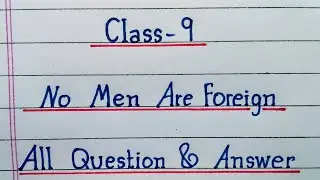 Class-9
No Men Are Foreign
All Question & Answer